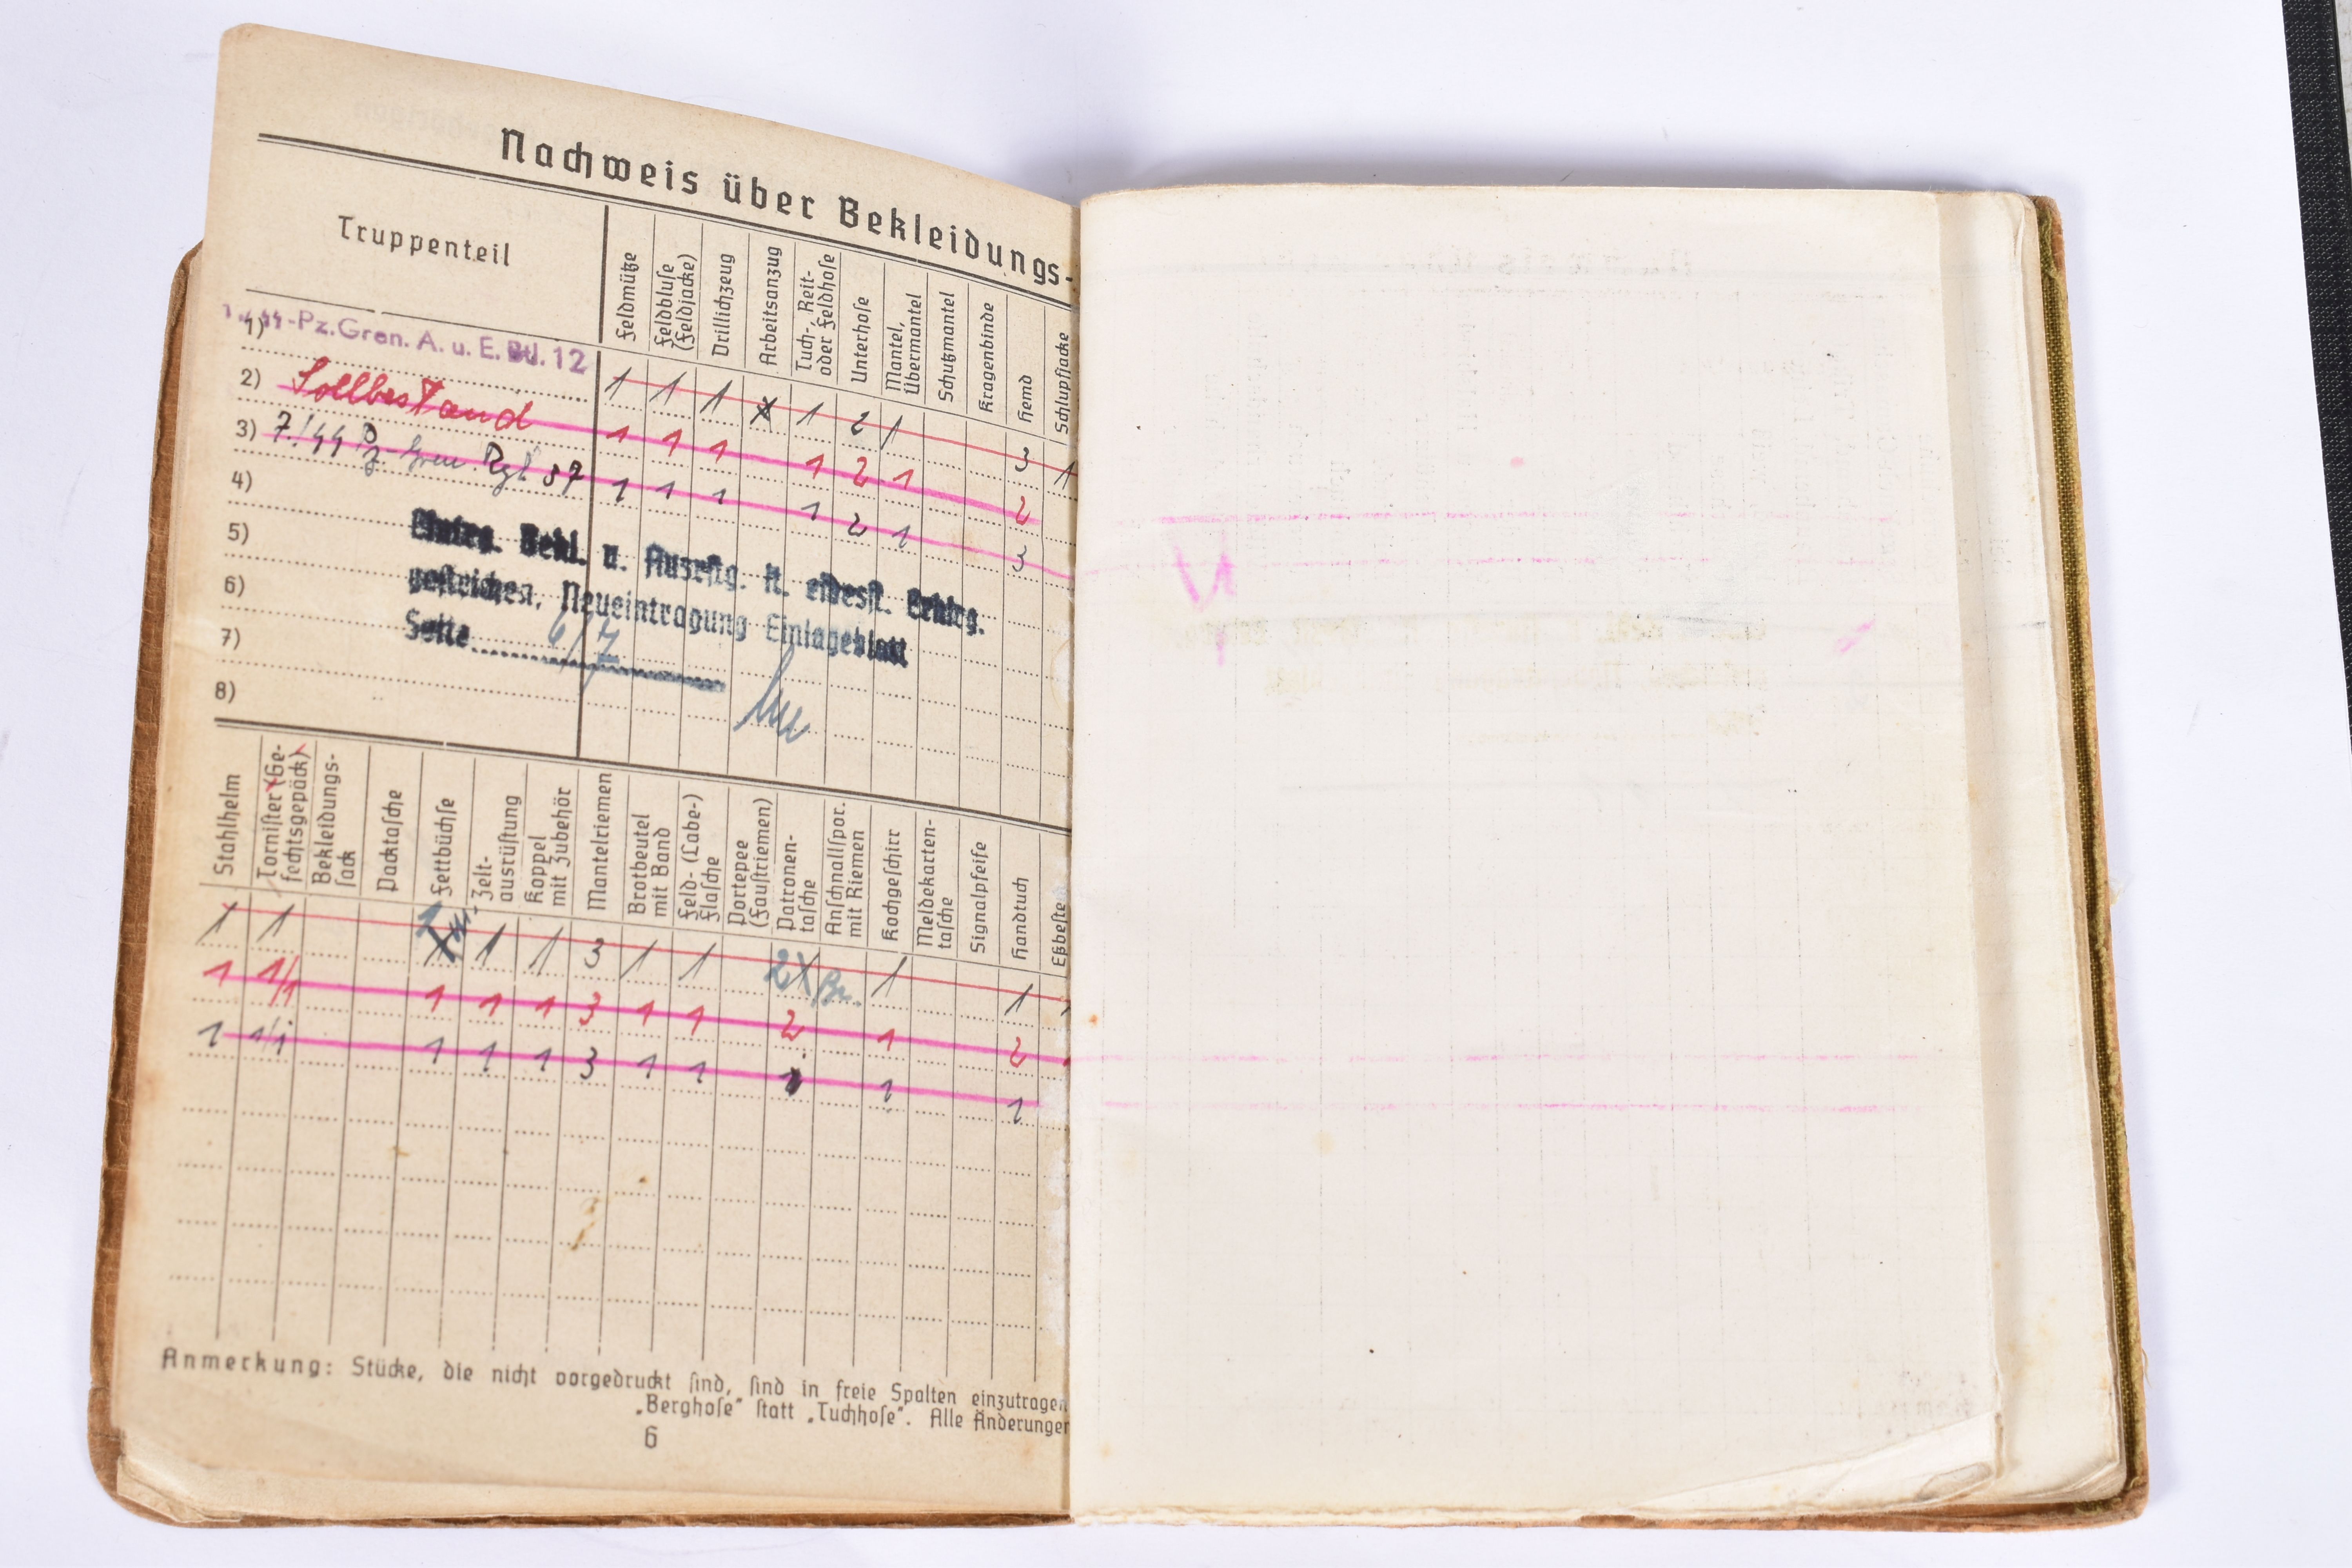 Nachweis über Bekleidungs-
Truppenteil
Feldmütze
Feldbluse
(Feldjacke)
Drillichzeug
Arbeitsanzug
Tuch-, Reit-
oder Feldhose
Unterhose
Mantel,
Übermantel
Schutzmantel
Kragenbinde
Hemd
Schlupfjacke
1) ϟϟ-Pz.Gren. A. u. E. Btl. 12
1 1 1 x 1 2 1 3 1
2) Sollbestand
1 1 1 1 2 1 2
3) 7./ϟϟ Pz.-Gren. Rgt 37
1 1 1 1 2 1 3
4)
5)
6)
7)
8)
Eintrg. Bekl. u. Ausrstg. lt. eidesst. Erklrg.
gestrichen, Neueintragung Einlageblatt
Seite 6/7
Stahlhelm
Tornister (Ge-
fechtsgepäck)
Bekleidungs-
sack
Packtasche
Fettbüchse
Zelt-
ausrüstung
Koppel
mit Zubehör
Mantelriemen
Brotbeutel
mit Band
Feld- (Labe-)
Flasche
Portepee
(Faustriemen)
Patronen-
tasche
Anschnallspor.
mit Riemen
Kochgeschirr
Meldekarten-
tasche
Signalpfeife
Handtuch
Eßbeste
1 1 1 1 3 1 1 2 1 1
1 1/1 1 1 1 3 1 1 2 1 2
1 1/1 1 1 1 3 1 1 1 1 1
Anmerkung: Stücke, die nicht vorgedruckt sind, sind in freie Spalten einzutragen
„Berghose“ statt „Tuchhose“. Alle Änderungen
6